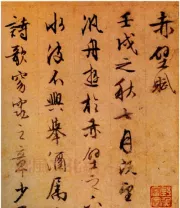 赤壁賦
壬戌之秋七月既望
汎舟遊於赤壁之下
水波不興舉酒屬
詩歌窈窕之章少